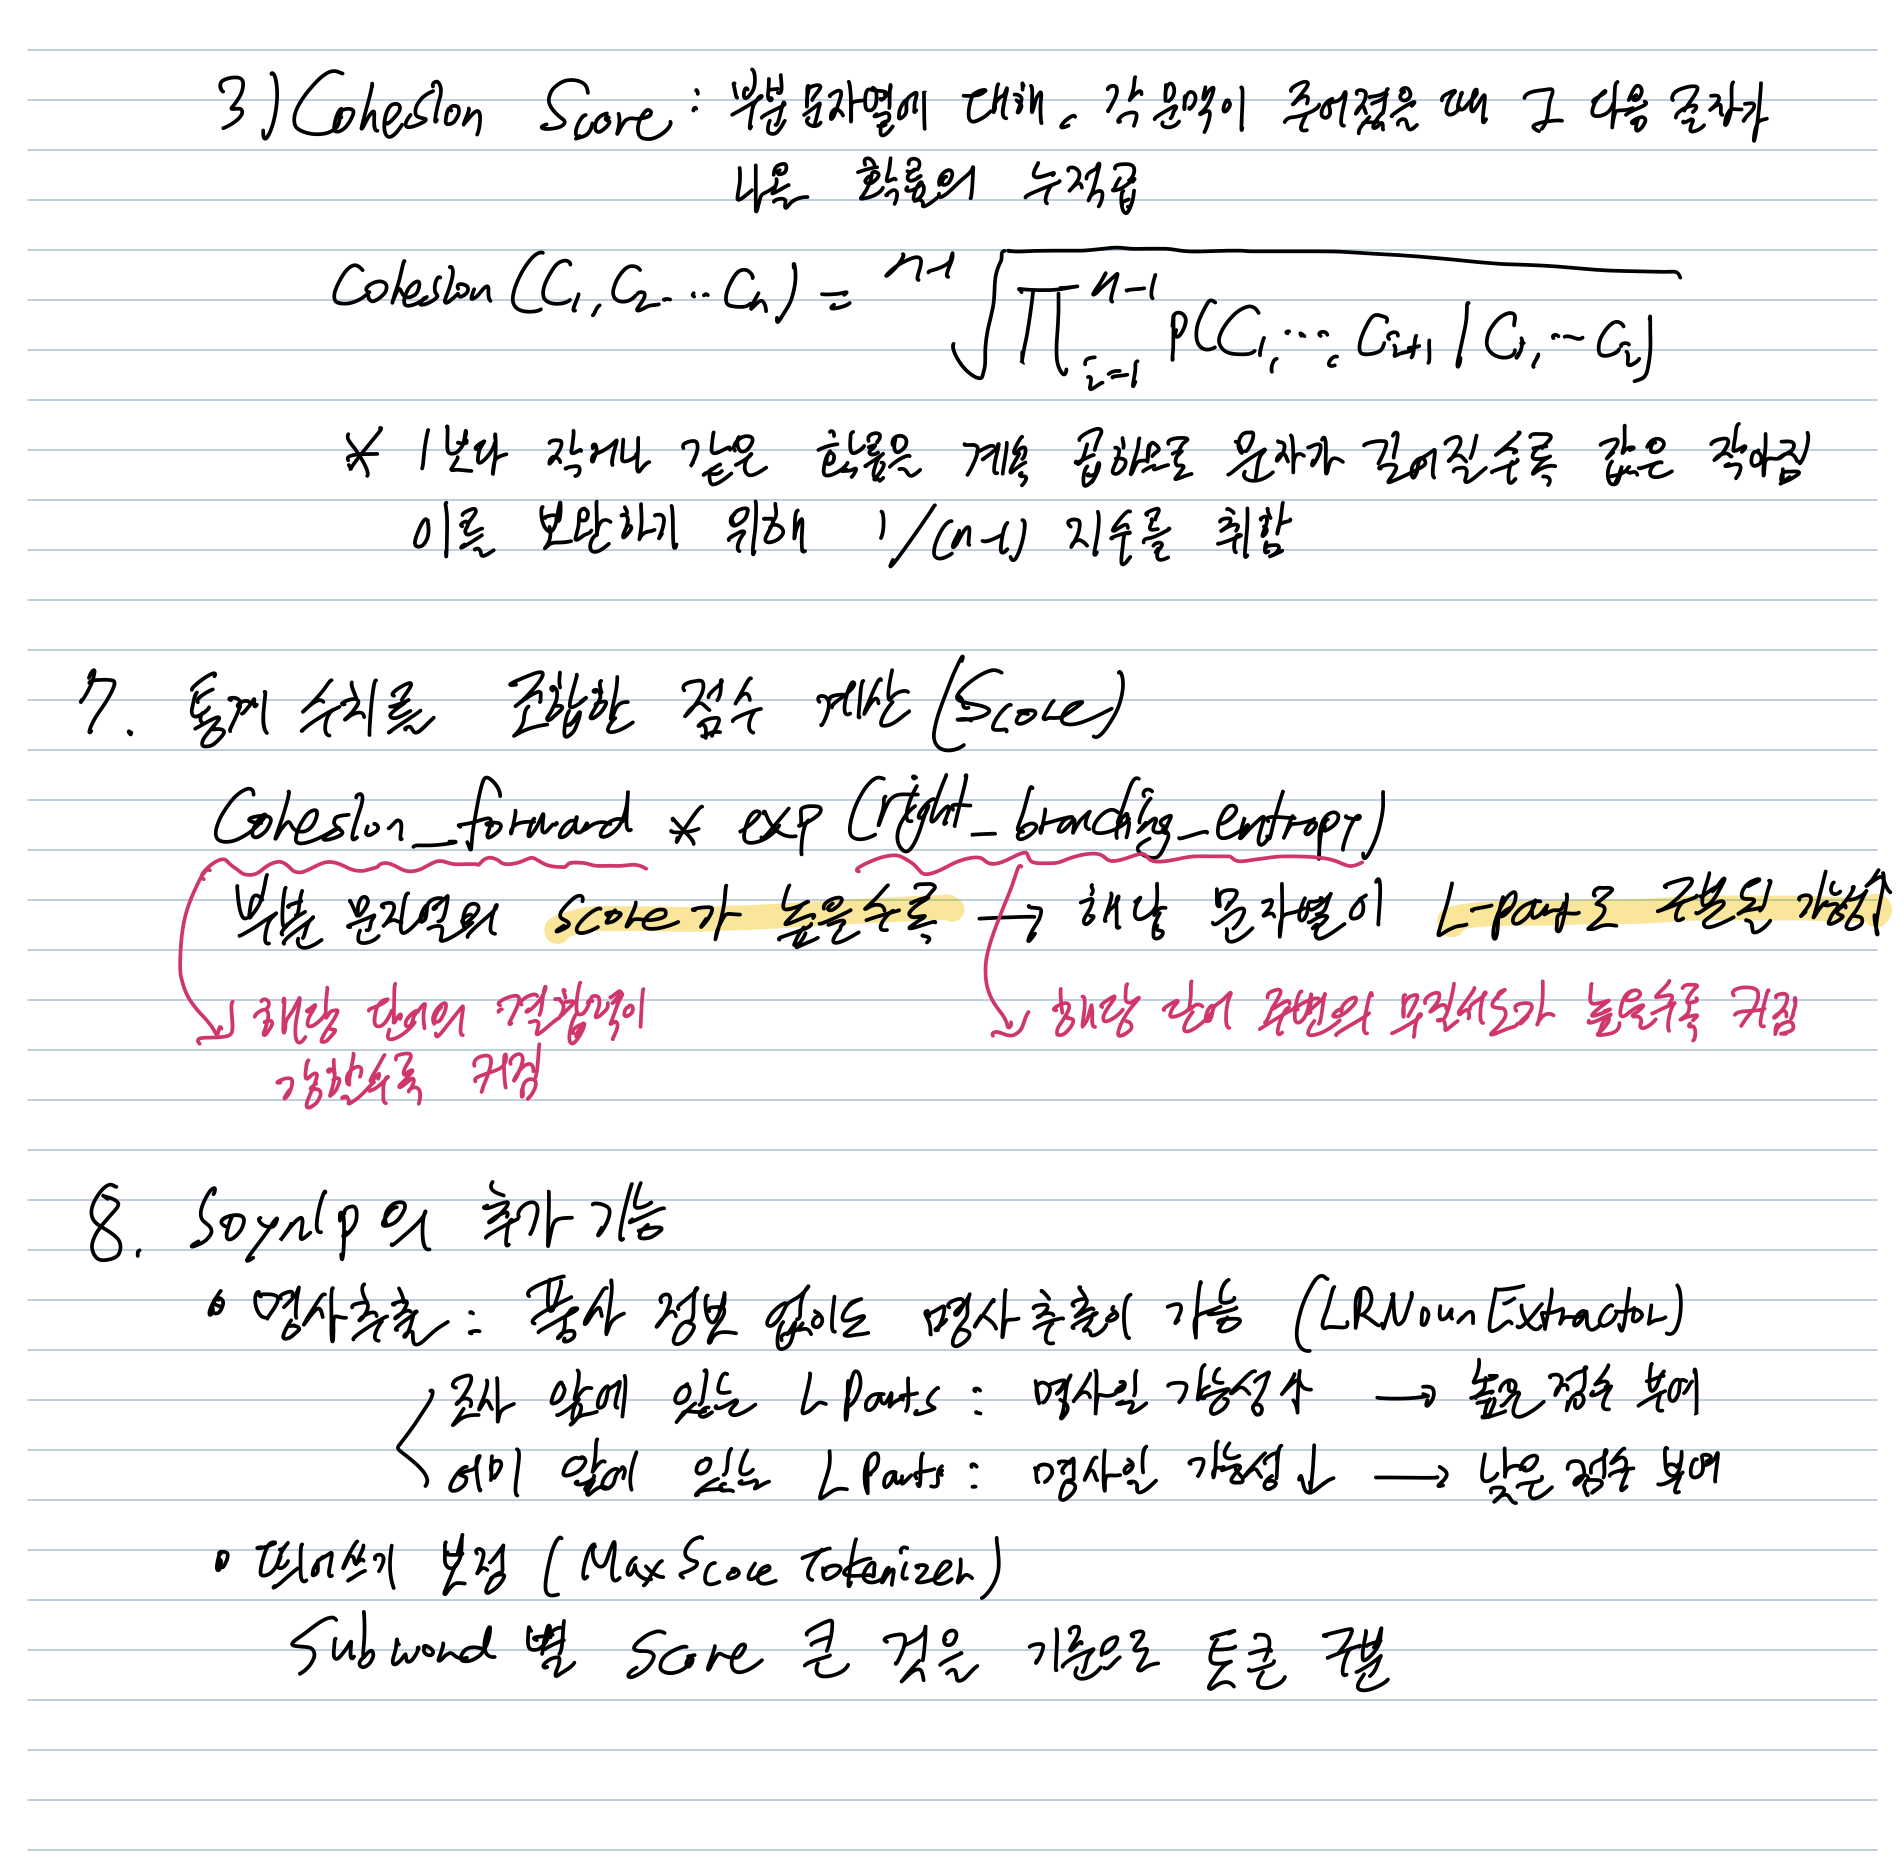 3) Cohesion Score : 부분문자열에 대해, 각 문맥이 주어졌을 때 그 다음 글자가
나올 확률의 누적곱
Cohesion (C₁, C₂ ... Cₙ) = ⁿ⁻¹√(∏ᵢ₌₁ⁿ⁻¹ P(C₁, ..., Cᵢ₊₁ | C₁, ... Cᵢ))
* 1보다 작거나 같은 확률을 계속 곱함으로 문자가 길어질수록 값은 작아짐
이를 보완하기 위해 1/(n-1) 지수를 취함
7. 통계 수치를 조합한 점수 계산 (Score)
Cohesion_forward * exp (right_branching_entropy)
부분 문자열의 score가 높을수록 → 해당 문자열이 L-part로 구분될 가능성↑
해당 단어의 결합력이
강할수록 커짐
해당 단어 주변의 무질서도가 높을수록 커짐
8. Soynlp의 추가 기능
• 명사추출 : 품사 정보 없이도 명사추출이 가능 (LRNounExtractor)
조사 앞에 있는 L Parts : 명사일 가능성↑ → 높은 점수 부여
어미 앞에 있는 L Parts : 명사일 가능성↓ → 낮은 점수 부여
• 띄어쓰기 보정 (MaxScoreTokenizer)
Subword별 Score 큰 것을 기준으로 토큰 구분